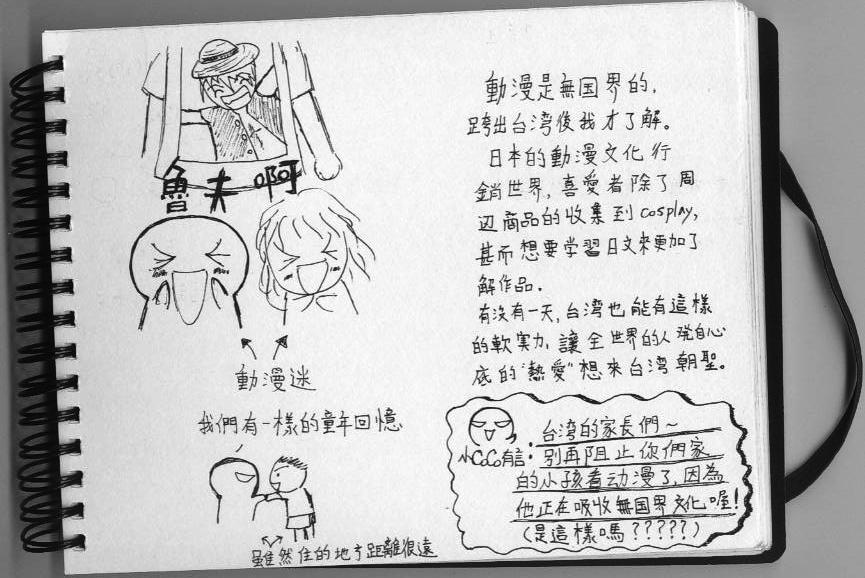 魯夫啊
動漫迷
我們有一樣的童年回憶
雖然住的地方距離很遠
動漫是無国界的,
跨出台湾後我才了解。
日本的動漫文化行
銷世界,喜愛者除了周
辺商品的收集到cosplay,
甚而想要学習日文來更加了
解作品.
有沒有一天,台湾也能有這樣
的軟实力,讓全世界的人発自心
底的"熱愛"想來台湾朝聖。
台湾的家長們~
小CoCo有言:別再阻止你們家
的小孩看动漫了,因為
他正在吸收無国界文化喔!
(是這樣嗎?????)